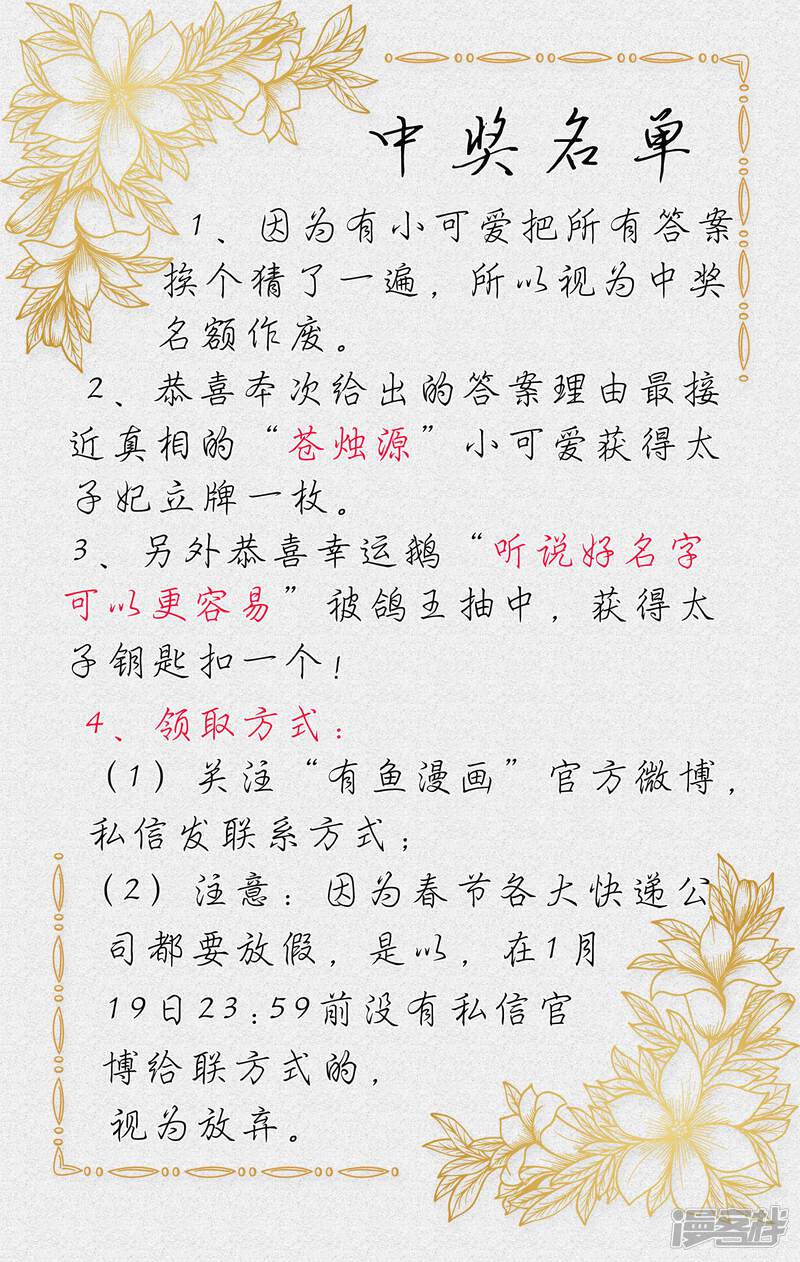 中奖名单
1、因为有小可爱把所有答案
挨个猜了一遍，所以视为中奖
名额作废。
2、恭喜本次给出的答案理由最接
近真相的“苍烛源”小可爱获得太
子妃立牌一枚。
3、另外恭喜幸运鹅“听说好名字
可以更容易”被鸽王抽中，获得太
子钥匙扣一个！
4、领取方式：
（1）关注“有鱼漫画”官方微博，
私信发联系方式；
（2）注意：因为春节各大快递公
司都要放假，是以，在1月
19日23:59前没有私信官
博给联方式的，
视为放弃。
漫客栈